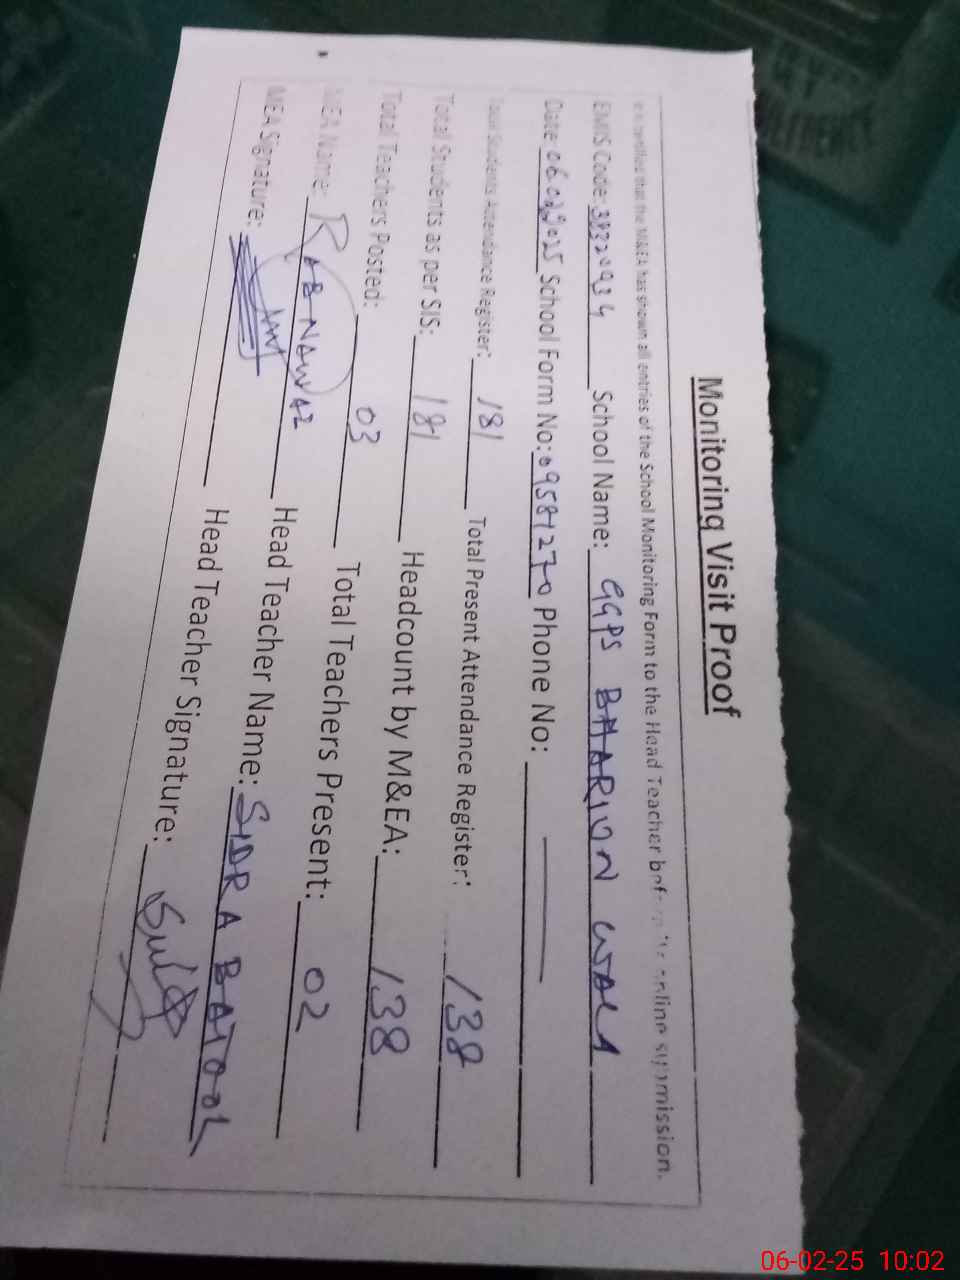 Monitoring Visit Proof
is certified that the M&EA has shown all entries of the School Monitoring Form to the Head Teacher before its online submission.
EMIS Code: 38220934 School Name: GGPS BHARION WALA
Date: 06.02.2025 School Form No: 09581270 Phone No: —
Total Students Attendance Register: 181 Total Present Attendance Register: 138
Total Students as per SIS: 181 Headcount by M&EA: 138
Total Teachers Posted: 03 Total Teachers Present: 02
MEA Name: RAB NAWAZ Head Teacher Name: SIDRA BATOOL
MEA Signature: Head Teacher Signature:
06-02-25 10:02